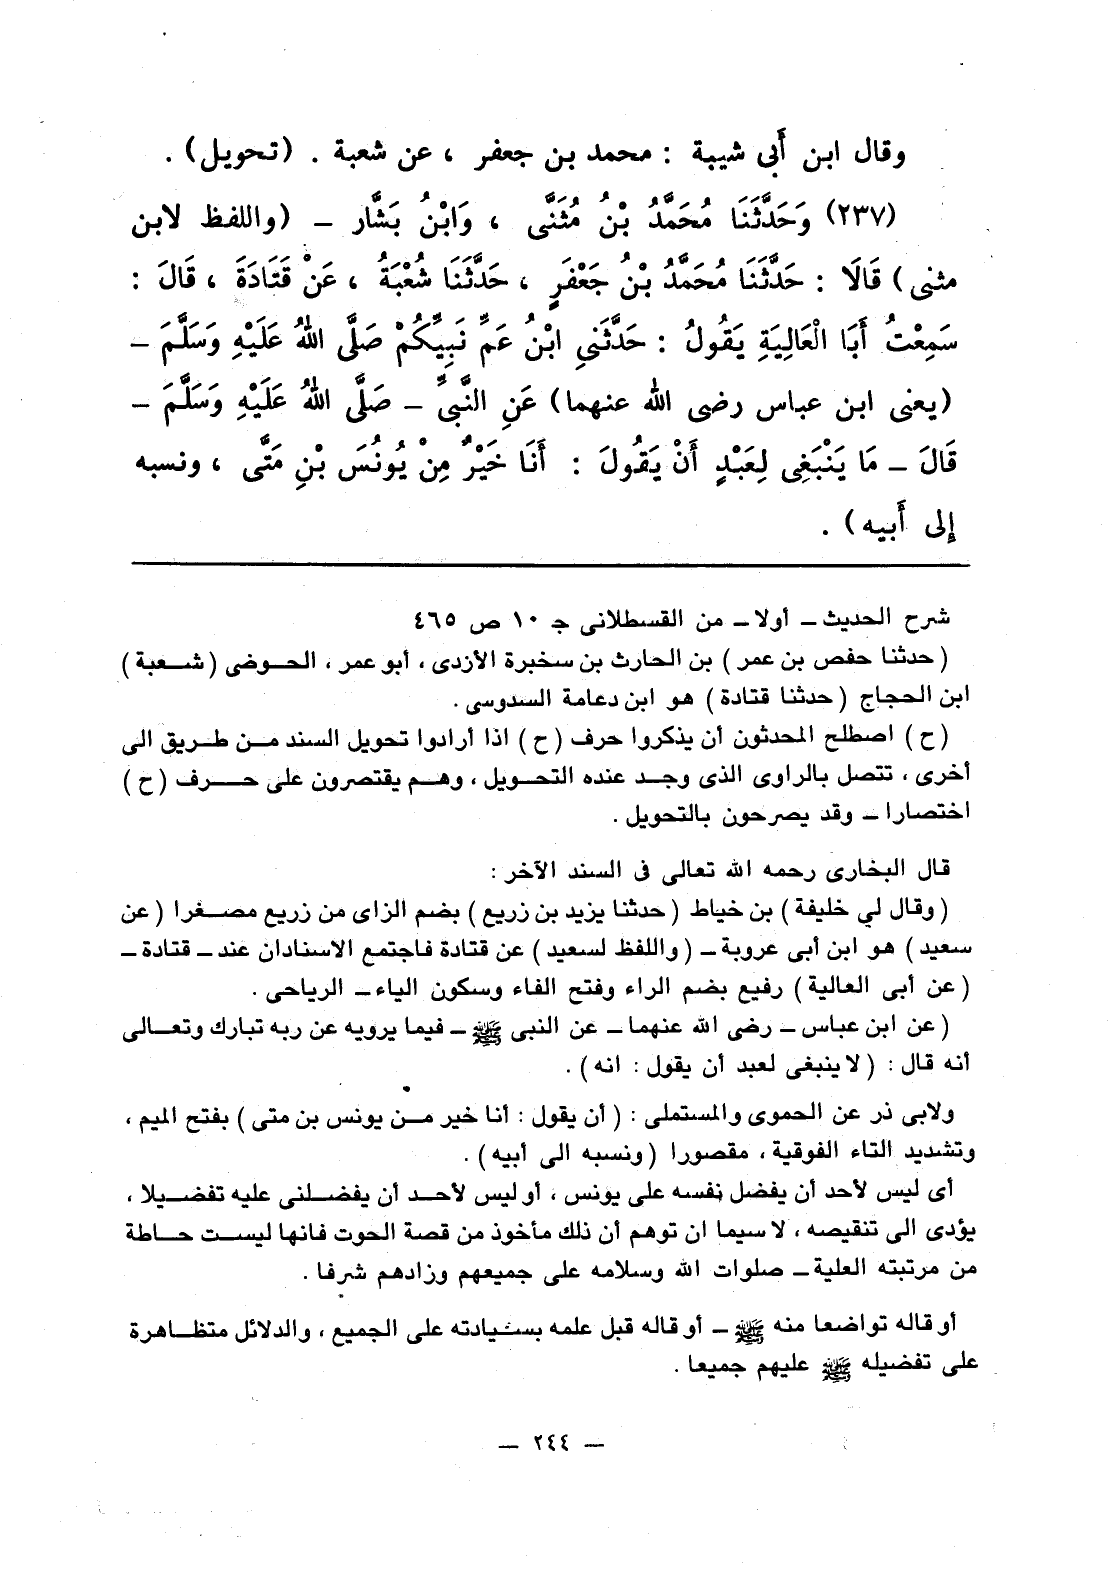 وقال ابن أَبى شيبة : محمد بن جعفر ، عن شعبة . (تحويل) .
(٢٣٧) وَحَدَّثَنَا مُحَمَّدُ بْنُ مُثَنَّى ، وَابْنُ بَشَّار – (واللفظ لابن
مثنى) قَالَا : حَدَّثَنَا مُحَمَّدُ بْنُ جَعْفَرٍ ، حَدَّثَنَا شُعْبَةُ ، عَنْ قَتَادَةَ ، قَالَ :
سَمِعْتُ أَبَا الْعَالِيَةِ يَقُولُ : حَدَّثَنِي ابْنُ عَمِّ نَبِيِّكُمْ صَلَّى اللهُ عَلَيْهِ وَسَلَّمَ –
(يعنى ابن عباس رضى الله عنهما) عَنِ النَّبِىِّ – صَلَّى اللهُ عَلَيْهِ وَسَلَّمَ –
قَالَ – مَا يَنْبَغِى لِعَبْدٍ أَنْ يَقُولَ : أَنَا خَيْرٌ مِنْ يُونُسَ بْنِ مَتَّى ، ونسبه
إِلى أَبيه) .
شرح الحديث – أولا – من القسطلانى جـ ١٠ ص ٤٦٥
(حدثنا حفص بن عمر) بن الحارث بن سخبرة الأزدى ، أبو عمر ، الحوضى (شعبة)
ابن الحجاج (حدثنا قتادة) هو ابن دعامة السدوسى .
(ح) اصطلح المحدثون أن يذكروا حرف (ح) اذا أرادوا تحويل السند من طريق الى
أخرى ، تتصل بالراوى الذى وجد عنده التحويل ، وهم يقتصرون على حرف (ح)
اختصارا – وقد يصرحون بالتحويل .
قال البخارى رحمه الله تعالى فى السند الآخر :
(وقال لي خليفة) بن خياط (حدثنا يزيد بن زريع) بضم الزاى من زريع مصغرا (عن
سعيد) هو ابن أبى عروبة – (واللفظ لسعيد) عن قتادة فاجتمع الاسنادان عند – قتادة –
(عن أبى العالية) رفيع بضم الراء وفتح الفاء وسكون الياء – الرياحى .
(عن ابن عباس – رضى الله عنهما – عن النبى ﷺ – فيما يرويه عن ربه تبارك وتعالى
أنه قال : (لا ينبغى لعبد أن يقول : انه) .
ولابى ذر عن الحموى والمستملى : (أن يقول : أنا خير من يونس بن متى) بفتح الميم ،
وتشديد التاء الفوقية ، مقصورا (ونسبه الى أبيه) .
أى ليس لأحد أن يفضل نفسه على يونس ، أو ليس لأحد أن يفضلنى عليه تفضيلا ،
يؤدى الى تنقيصه ، لا سيما ان توهم أن ذلك مأخوذ من قصة الحوت فانها ليست حاطة
من مرتبته العلية – صلوات الله وسلامه على جميعهم وزادهم شرفا .
أو قاله تواضعا منه ﷺ – أو قاله قبل علمه بسيادته على الجميع ، والدلائل متظاهرة
على تفضيله ﷺ عليهم جميعا .
– ٢٤٤ –